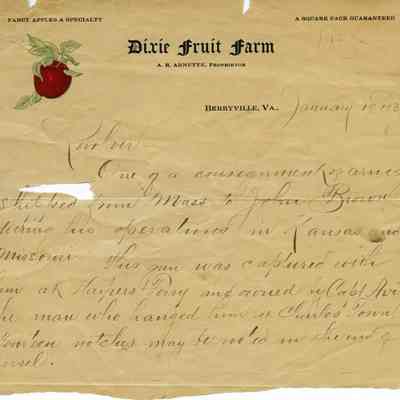 FANCY APPLES A SPECIALTY
A SQUARE PACK GUARANTEED
Dixie Fruit Farm
A. R. ARNETTE, PROPRIETOR
BERRYVILLE, VA.,
January
Revolver
One of a consignment of arms
shipped from Mass to John Brown
during his operations in Kansas and
Missouri This gun was captured with
him at Harpers Ferry and owned by Capt Avis
the man who hanged him at Charles Town
notches may be noted in the end of